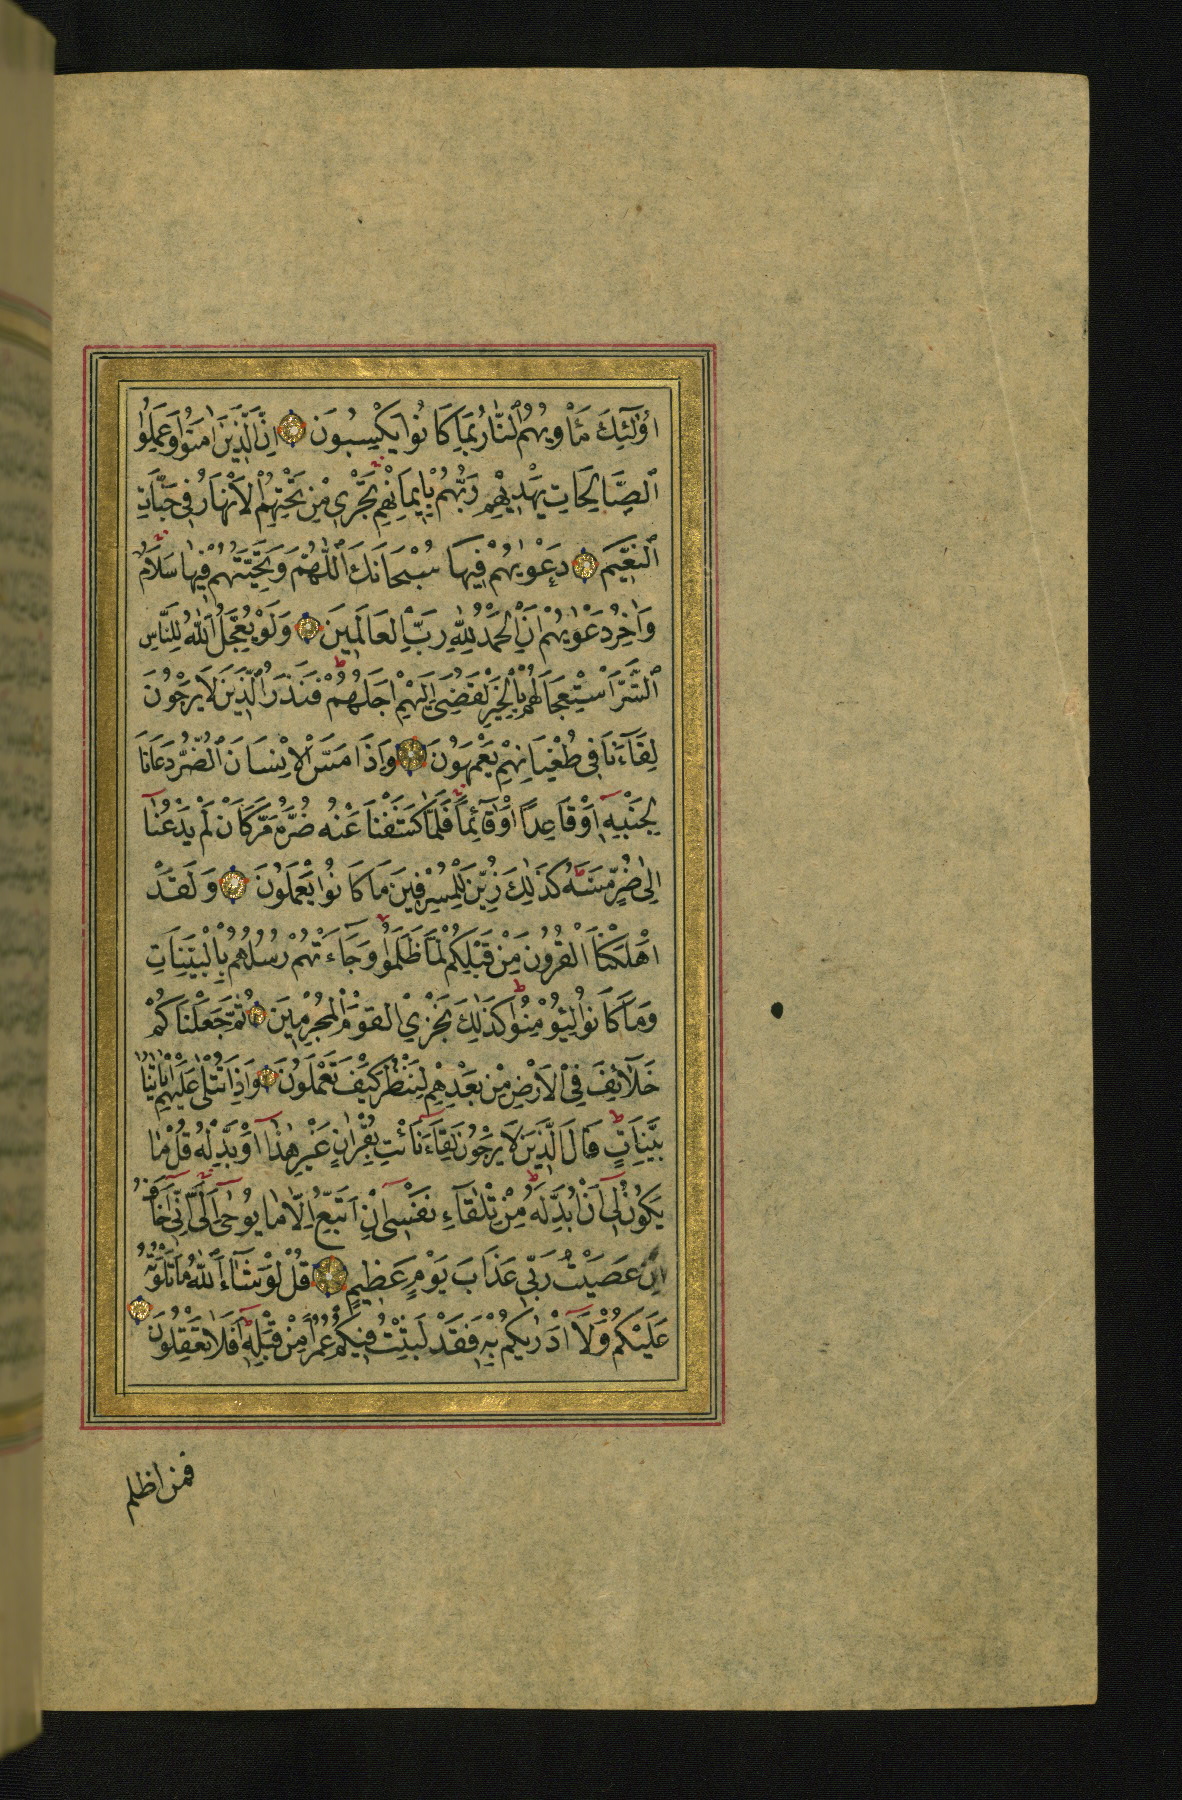 اُولٰٓئِكَ مَأْوٰيهُمُ النَّارُ بِمَا كَانُوا يَكْسِبُونَ اِنَّ الَّذِينَ اٰمَنُوا وَعَمِلُوا
الصَّالِحَاتِ يَهْدِيهِمْ رَبُّهُمْ بِاِيمَانِهِمْ تَجْرِي مِنْ تَحْتِهِمُ الْاَنْهَارُ فِي جَنَّاتِ
النَّعِيمِ دَعْوٰيهُمْ فِيهَا سُبْحَانَكَ اللّٰهُمَّ وَتَحِيَّتُهُمْ فِيهَا سَلَامٌ
وَاٰخِرُ دَعْوٰيهُمْ اَنِ الْحَمْدُ لِلّٰهِ رَبِّ الْعَالَمِينَ وَلَوْ يُعَجِّلُ اللّٰهُ لِلنَّاسِ
الشَّرَّ اسْتِعْجَالَهُمْ بِالْخَيْرِ لَقُضِيَ اِلَيْهِمْ اَجَلُهُمْ فَنَذَرُ الَّذِينَ لَا يَرْجُونَ
لِقَآءَنَا فِي طُغْيَانِهِمْ يَعْمَهُونَ وَاِذَا مَسَّ الْاِنْسَانَ الضُّرُّ دَعَانَا
لِجَنْبِهِ اَوْ قَاعِدًا اَوْ قَآئِمًا فَلَمَّا كَشَفْنَا عَنْهُ ضُرَّهُ مَرَّ كَاَنْ لَمْ يَدْعُنَا
اِلٰى ضُرٍّ مَسَّهُ كَذٰلِكَ زُيِّنَ لِلْمُسْرِفِينَ مَا كَانُوا يَعْمَلُونَ وَلَقَدْ
اَهْلَكْنَا الْقُرُونَ مِنْ قَبْلِكُمْ لَمَّا ظَلَمُوا وَجَآءَتْهُمْ رُسُلُهُمْ بِالْبَيِّنَاتِ
وَمَا كَانُوا لِيُؤْمِنُوا كَذٰلِكَ نَجْزِي الْقَوْمَ الْمُجْرِمِينَ ثُمَّ جَعَلْنَاكُمْ
خَلَآئِفَ فِي الْاَرْضِ مِنْ بَعْدِهِمْ لِنَنْظُرَ كَيْفَ تَعْمَلُونَ وَاِذَا تُتْلٰى عَلَيْهِمْ اٰيَاتُنَا
بَيِّنَاتٍ قَالَ الَّذِينَ لَا يَرْجُونَ لِقَآءَنَا ائْتِ بِقُرْاٰنٍ غَيْرِ هٰذَآ اَوْ بَدِّلْهُ قُلْ مَا
يَكُونُ لِيٓ اَنْ اُبَدِّلَهُ مِنْ تِلْقَآءِ نَفْسِيٓ اِنْ اَتَّبِعُ اِلَّا مَا يُوحٰىٓ اِلَيَّ اِنِّيٓ اَخَافُ
اِنْ عَصَيْتُ رَبِّي عَذَابَ يَوْمٍ عَظِيمٍ قُلْ لَوْ شَآءَ اللّٰهُ مَا تَلَوْتُهُ
عَلَيْكُمْ وَلَآ اَدْرٰيكُمْ بِهِ فَقَدْ لَبِثْتُ فِيكُمْ عُمُرًا مِنْ قَبْلِهِ اَفَلَا تَعْقِلُونَ
فمن اظلم